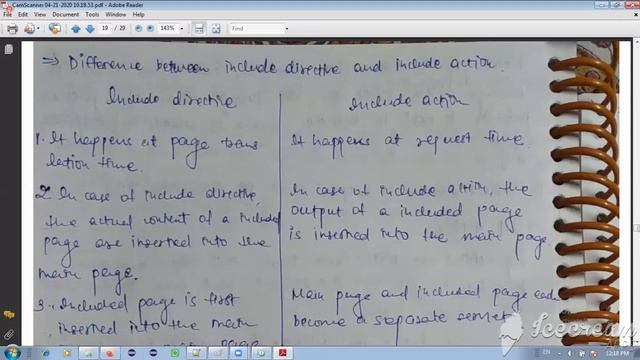 CamScanner 04-21-2020 10.18.53.pdf - Adobe Reader
19 / 29 143%
⇒ Difference between include directive and include action.
Include directive Include action
1. It happens at page trans
lation time.
It happens at request time.
2. In case of include directive,
the actual content of a included
page are inserted into the
main page.
In case of include action, the
output of a included page
is inserted into the main page.
3. Included page is first
inserted into the main
Main page and included page each
become a separate servlet
Icecream
EN
12:18 PM